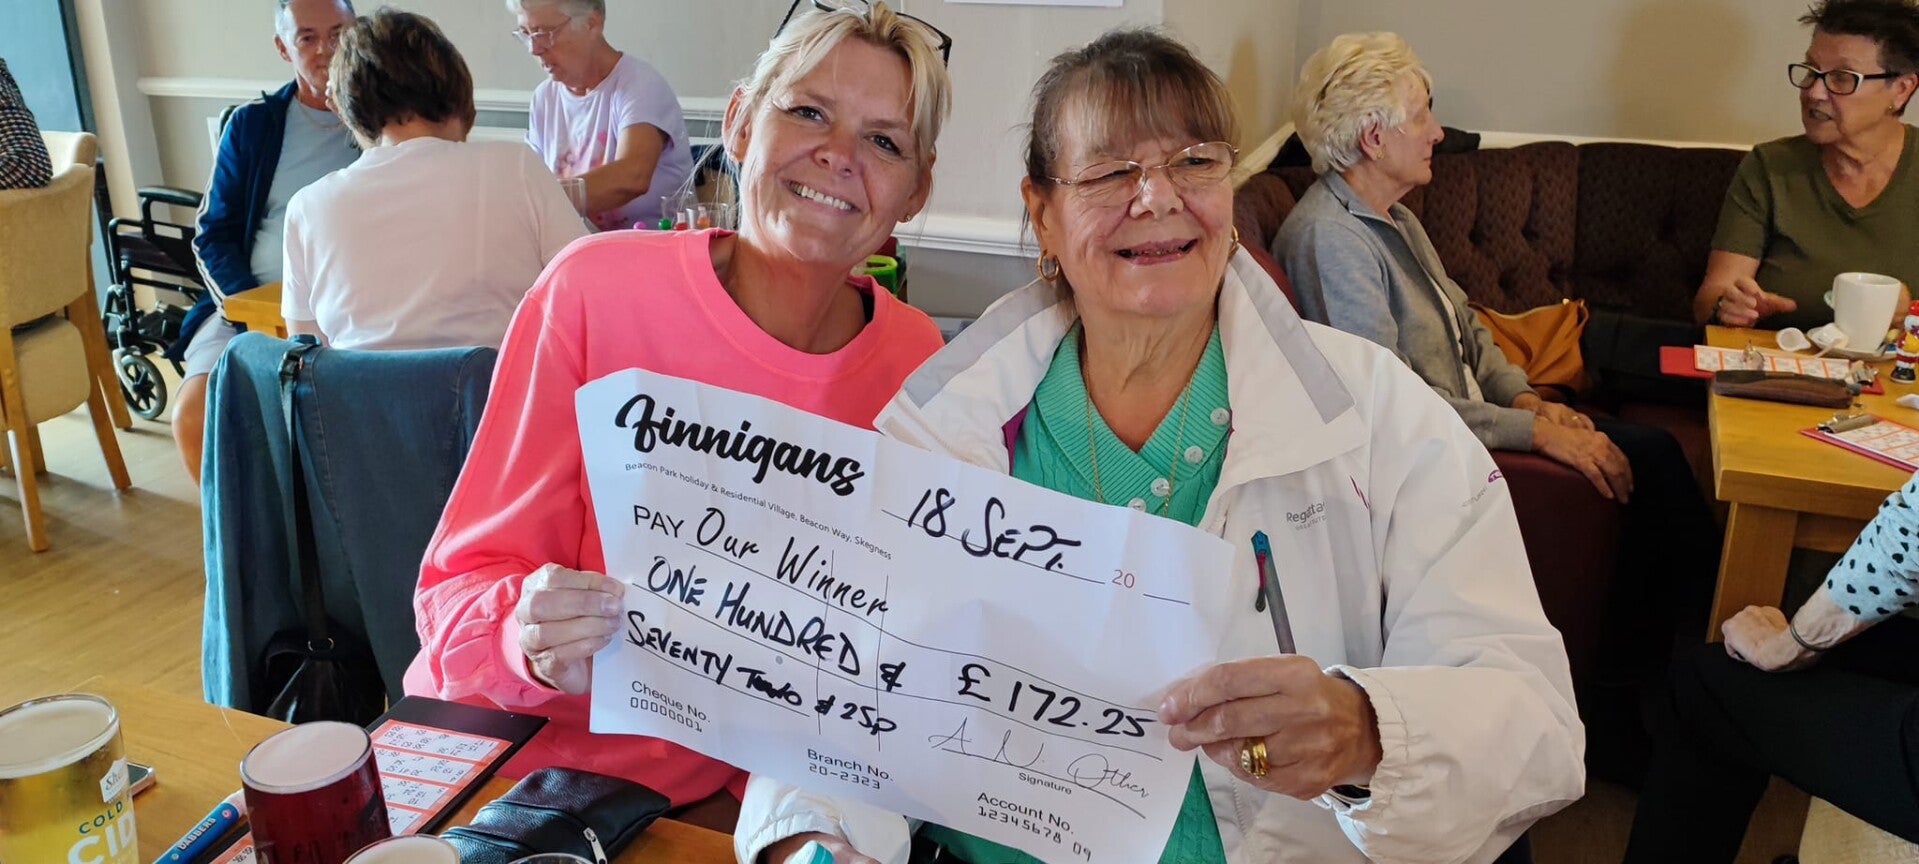 Finnigans
Beacon Park holiday & Residential Village, Beacon Way, Skegness
18 SEPT. 20
PAY Our Winner
ONE HUNDRED &
SEVENTY TWO & 25p
£172.25
A N. Other
Signature
Cheque No.
00000001
Branch No.
20-2323
Account No.
12345678 09
Regatta
COLD
CID
DABBERS